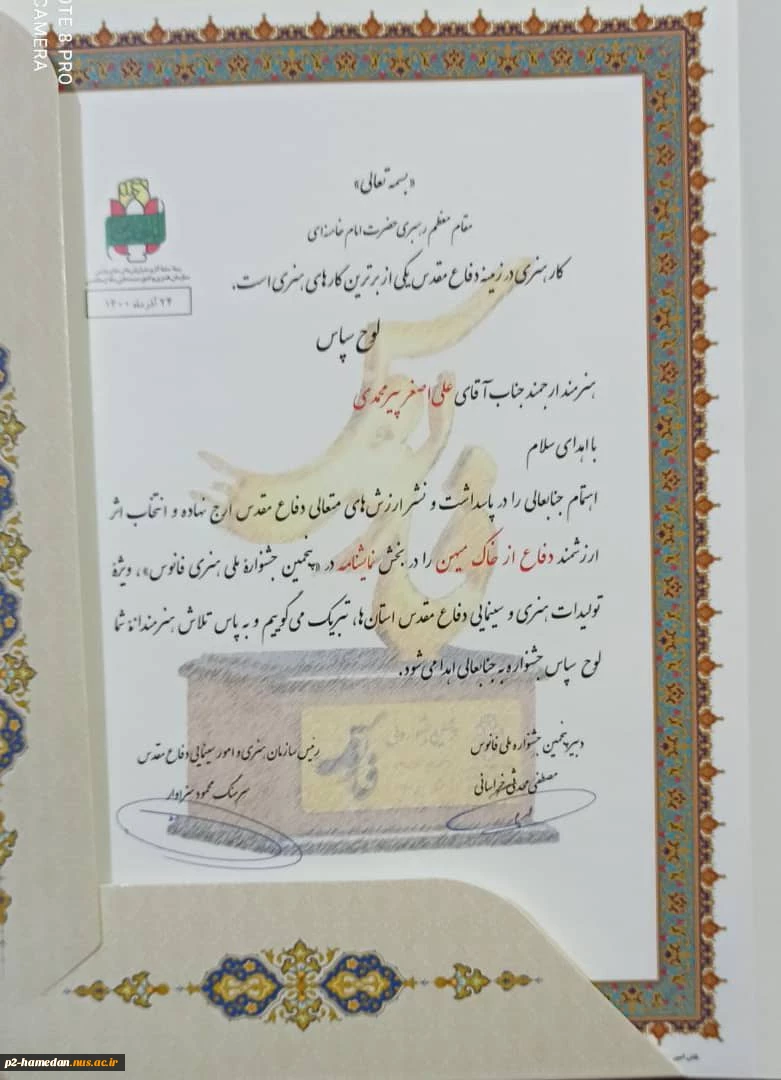 NOTE 8 PRO
CAMERA
«بسمه تعالی»
مقام معظم رهبری حضرت امام خامنه‌ای
کار هنری در زمینهٔ دفاع مقدس یکی از برترین کارهای هنری است.
۲۴ آذر ماه ۱۴۰۰
لوح سپاس
هنرمند ارجمند جناب آقای علی اصغر پیرمحمدی
با اهدای سلام
اهتمام جنابعالی را در پاسداشت و نشر ارزش‌های متعالی دفاع مقدس ارج نهاده و انتخاب اثر
ارزشمند دفاع از خاک میهن را در بخش نمایشنامه در «پنجمین جشنوارهٔ ملی هنری فانوس»، ویژهٔ
تولیدات هنری و سینمایی دفاع مقدس استان‌ها، تبریک می‌گوییم و به پاس تلاش هنرمندانهٔ شما
لوح سپاس جشنواره به جنابعالی اهدا می‌شود.
دبیر پنجمین جشنواره ملی فانوس
مصطفی محدثی خراسانی
رئیس سازمان هنری و امور سینمایی دفاع مقدس
سرهنگ محمود سنرادار
p2-hamedan.nus.ac.ir